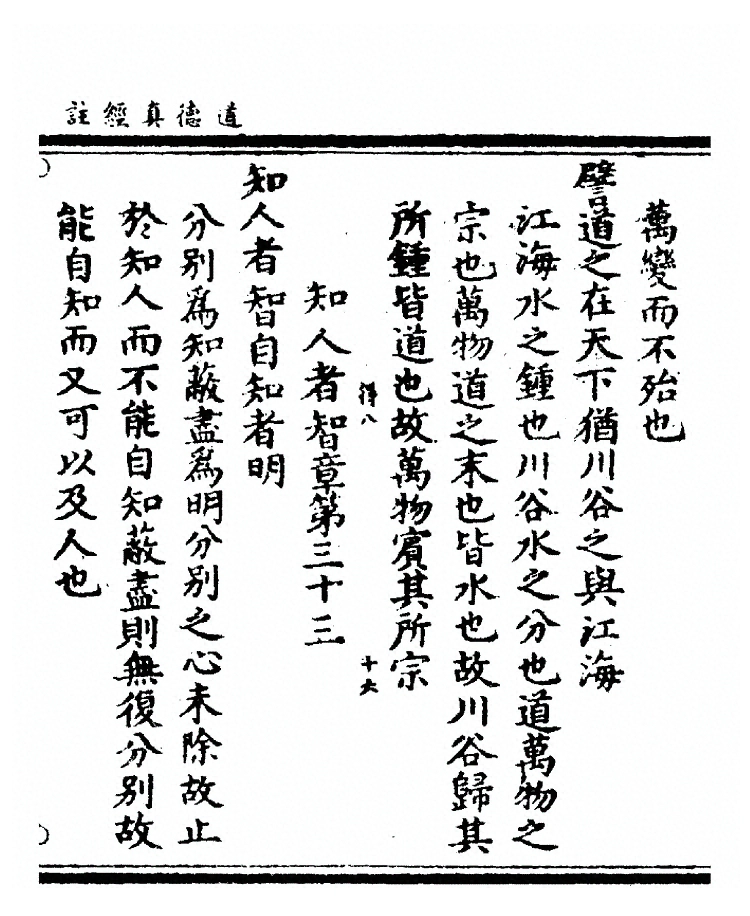 道德真經註
萬變而不殆也
譬道之在天下猶川谷之與江海
江海水之鍾也川谷水之分也道萬物之
宗也萬物道之末也皆水也故川谷歸其
所鍾皆道也故萬物賓其所宗
得八
十六
知人者智章第三十三
知人者智自知者明
分別爲知蔽盡爲明分別之心未除故止
於知人而不能自知蔽盡則無復分別故
能自知而又可以及人也